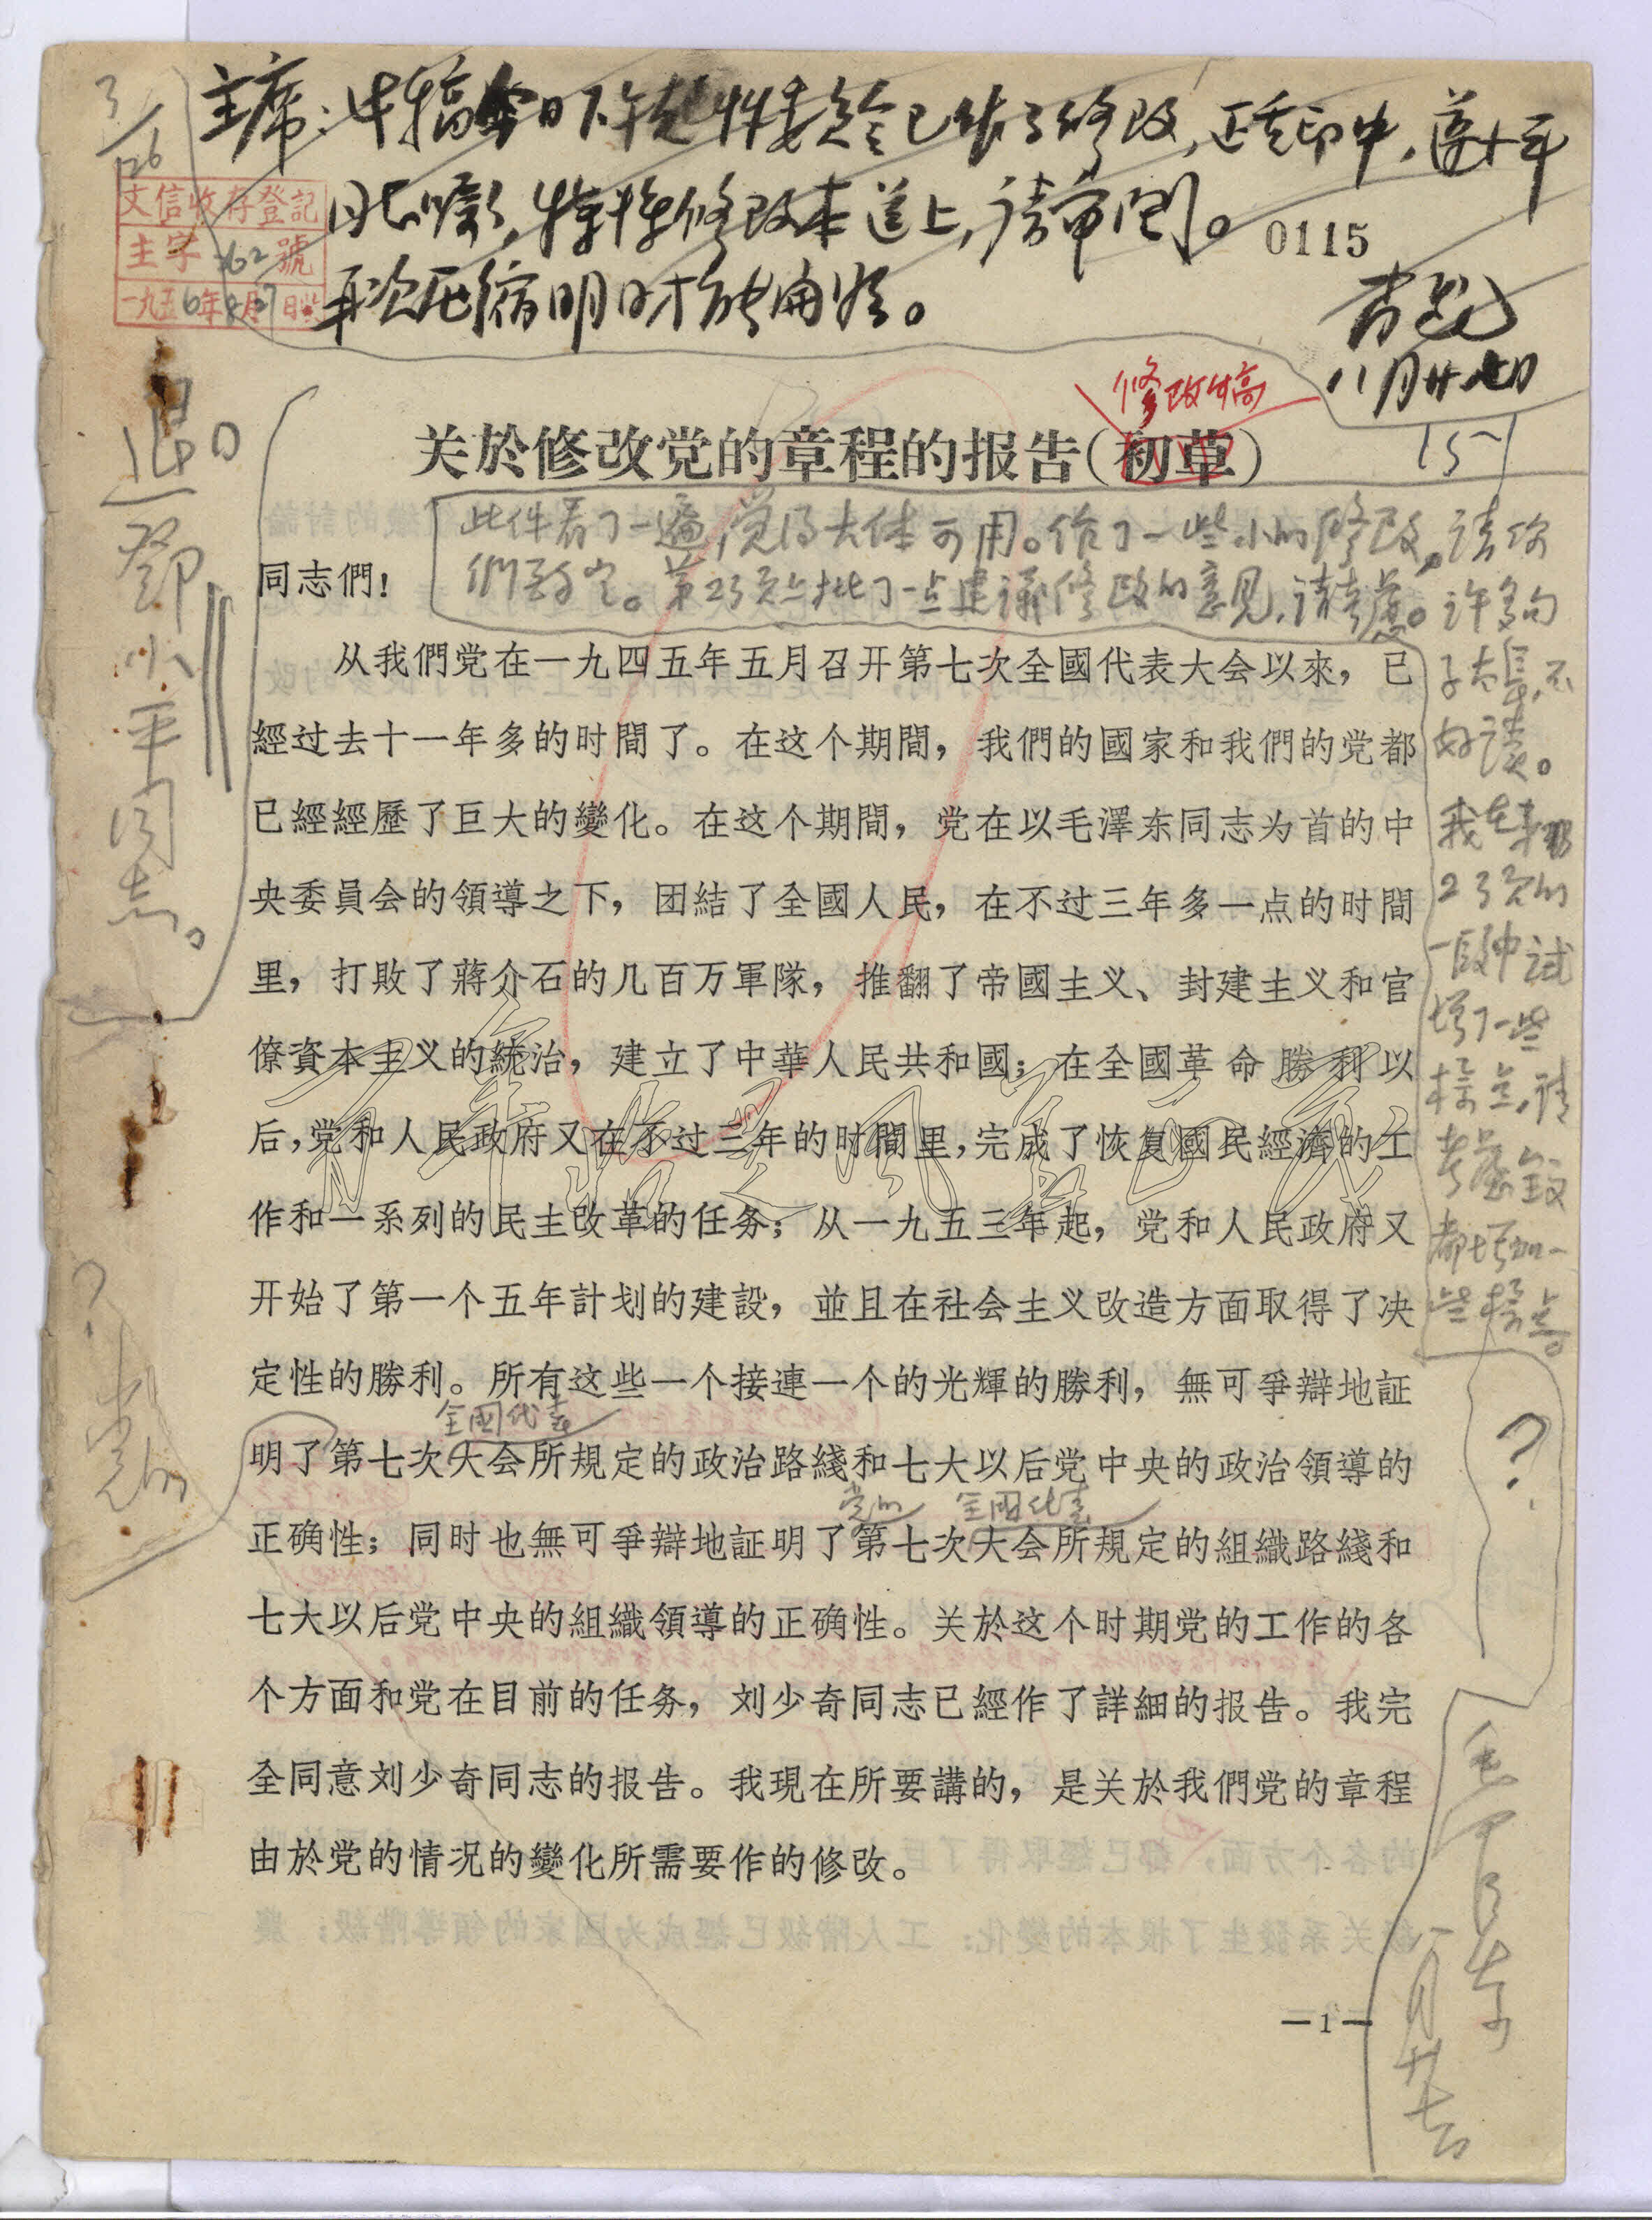 主席：此稿今日下午起草委員会已作了修改，正重印中，遵小平
同志囑，特将修改本送上，請审閱。
再次压縮明日才能開始。
尚昆
八月廿七日
0115
文信收存登記
主字 162 號
一九五6年8月27日
退
鄧小平同志。
修改稿
关於修改党的章程的报告(初草)
此件看了一遍，觉得大体可用。作了一些小的修改，請你
們酌定。第23頁上批了一点建議修改的意見，請考慮。許多句
子太長，不
好讀。
我在第
23頁的
一段中試
增了一些
标点，請
考慮全文
都增加一
些标点。
毛泽东
八月廿七日
同志們!
从我們党在一九四五年五月召开第七次全國代表大会以來，已
經过去十一年多的时間了。在这个期間，我們的國家和我們的党都
已經經歷了巨大的變化。在这个期間，党在以毛澤东同志为首的中
央委員会的領導之下，团結了全國人民，在不过三年多一点的时間
里，打敗了蔣介石的几百万軍隊，推翻了帝國主义、封建主义和官
僚資本主义的統治，建立了中華人民共和國；在全國革命勝利以
后，党和人民政府又在不过三年的时間里，完成了恢复國民經濟的工
作和一系列的民主改革的任务；从一九五三年起，党和人民政府又
开始了第一个五年計划的建設，並且在社会主义改造方面取得了决
定性的勝利。所有这些一个接連一个的光輝的勝利，無可爭辯地証
全國代表
明了第七次大会所規定的政治路綫和七大以后党中央的政治領導的
党的 全國代表
正确性；同时也無可爭辯地証明了第七次大会所規定的組織路綫和
七大以后党中央的組織領導的正确性。关於这个时期党的工作的各
个方面和党在目前的任务，刘少奇同志已經作了詳細的报告。我完
全同意刘少奇同志的报告。我現在所要講的，是关於我們党的章程
由於党的情况的變化所需要作的修改。
？党的
？
—1—